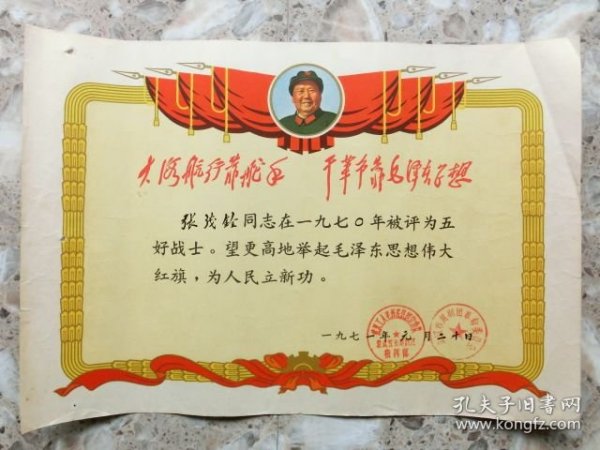 大海航行靠舵手 干革命靠毛泽东思想
张茂铨同志在一九七〇年被评为五
好战士。望更高地举起毛泽东思想伟大
红旗，为人民立新功。
一九七一年元月二十日
孔夫子旧书网
www.kongfz.com